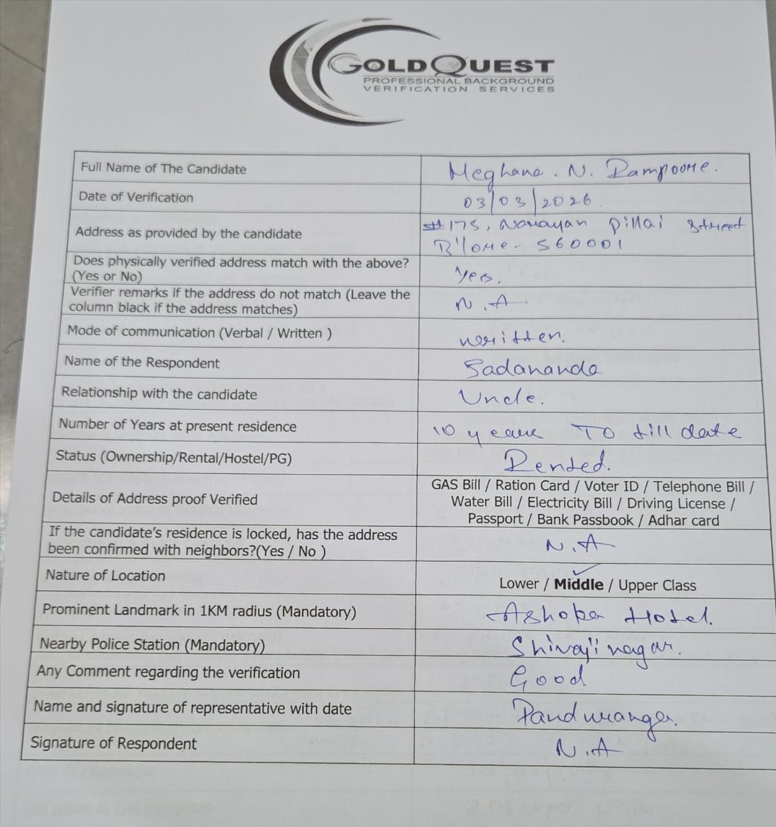 GOLDQUEST
PROFESSIONAL BACKGROUND
VERIFICATION SERVICES
Full Name of The Candidate Meghana. N. Rampoore.
Date of Verification 03/03/2026
Address as provided by the candidate #175, Narayan pillai street
B'lore- 560001
Does physically verified address match with the above?
(Yes or No) Yes.
Verifier remarks if the address do not match (Leave the
column black if the address matches) N.A
Mode of communication (Verbal / Written ) written.
Name of the Respondent Sadananda
Relationship with the candidate Uncle.
Number of Years at present residence 10 years To till date
Status (Ownership/Rental/Hostel/PG) Rented.
Details of Address proof Verified GAS Bill / Ration Card / Voter ID / Telephone Bill /
Water Bill / Electricity Bill / Driving License /
Passport / Bank Passbook / Adhar card
If the candidate's residence is locked, has the address
been confirmed with neighbors?(Yes / No ) N.A
Nature of Location Lower / Middle / Upper Class
Prominent Landmark in 1KM radius (Mandatory) Ashoka Hotel.
Nearby Police Station (Mandatory) Shivaji nagar.
Any Comment regarding the verification Good
Name and signature of representative with date Panduranga.
Signature of Respondent N.A